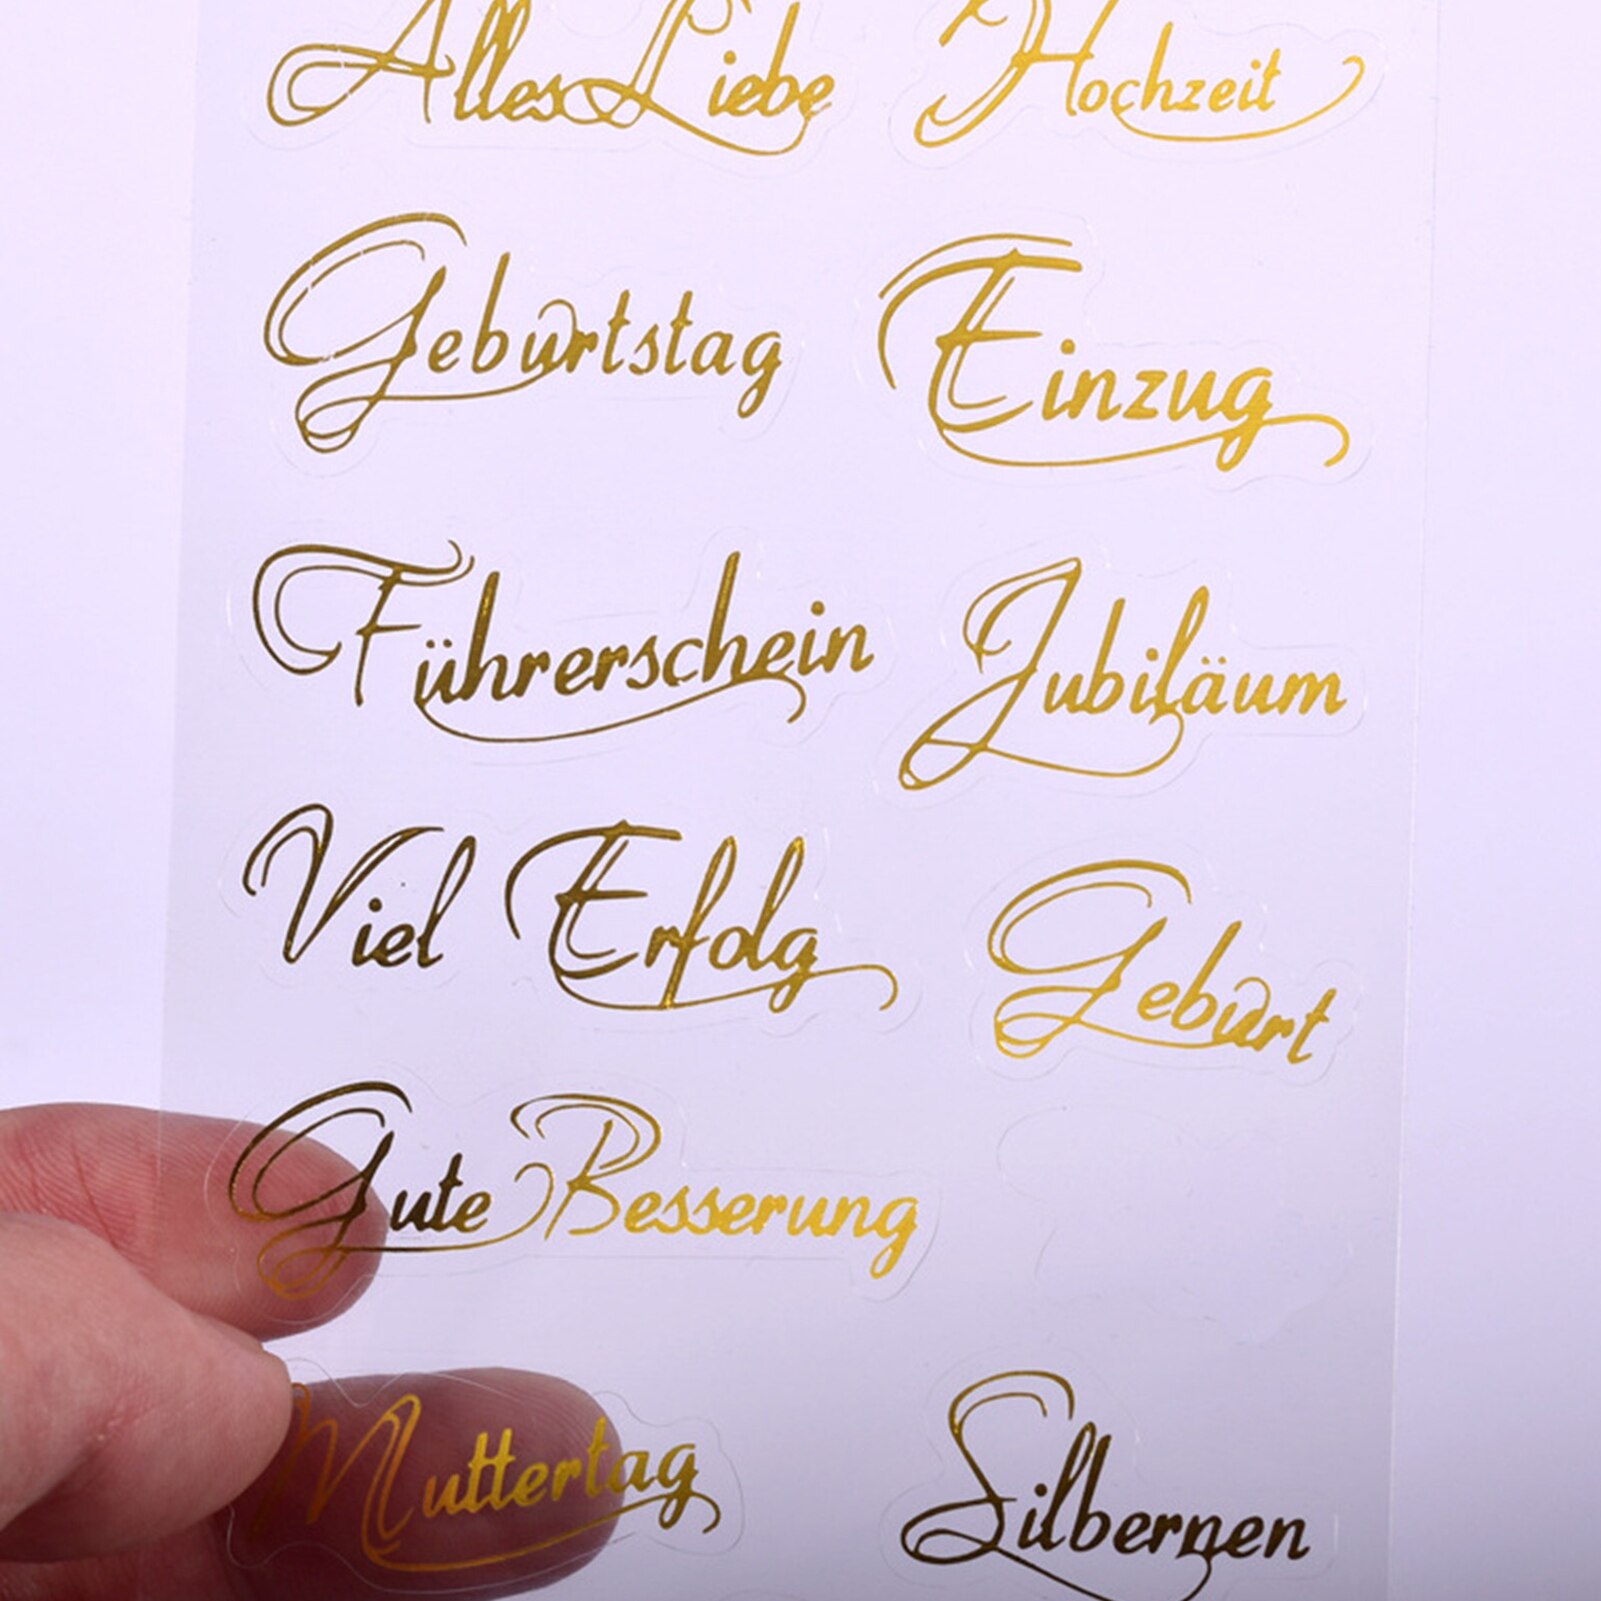 Alles Liebe Hochzeit
Geburtstag Einzug
Führerschein Jubiläum
Viel Erfolg Geburt
Gute Besserung
Muttertag Silbernen